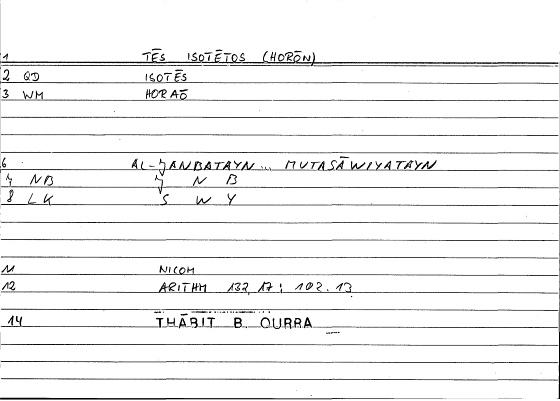 1 TĒS ISOTĒTOS (HORŌN)
2 QD ISOTĒS
3 WM HORAŌ
6 AL-JANBATAYN... MUTASĀWIYATAYN
7 NB J N B
8 LK S W Y
11 NICOM
12 ARITHM 132, 17 : 102. 13
14 THĀBIT B. QURRA